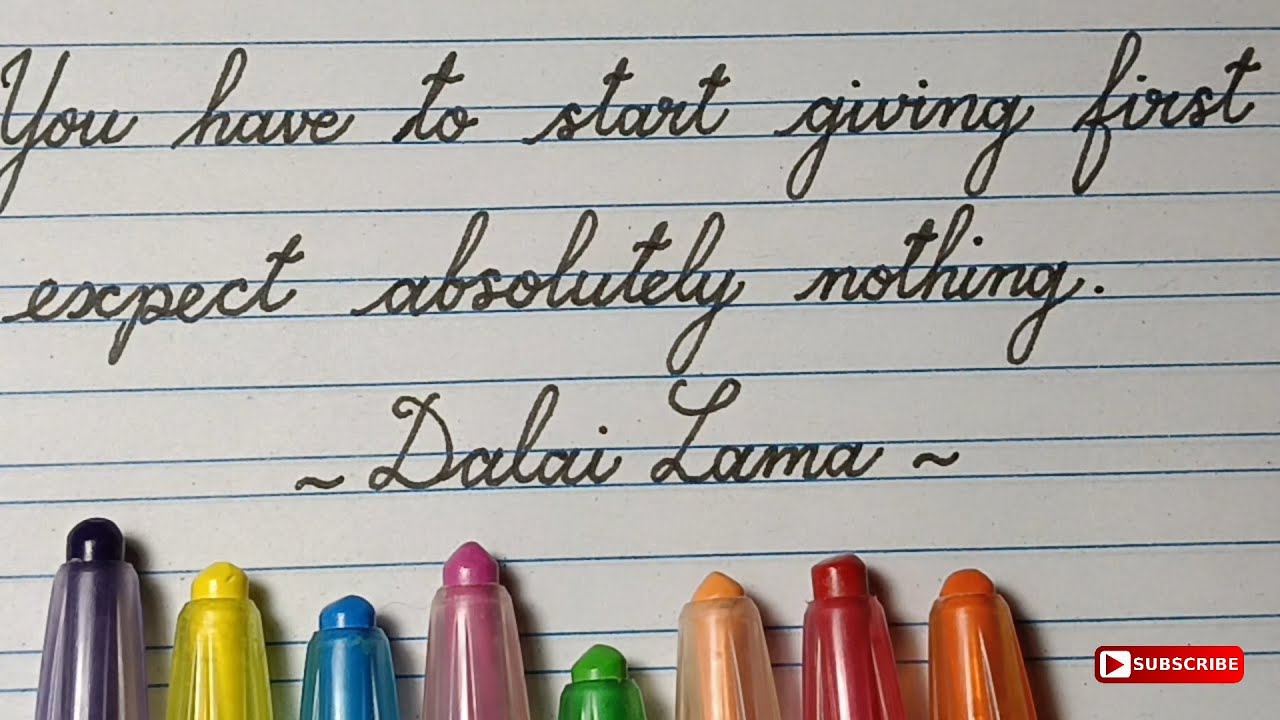 You have to start giving first
expect absolutely nothing.
~ Dalai Lama ~
SUBSCRIBE